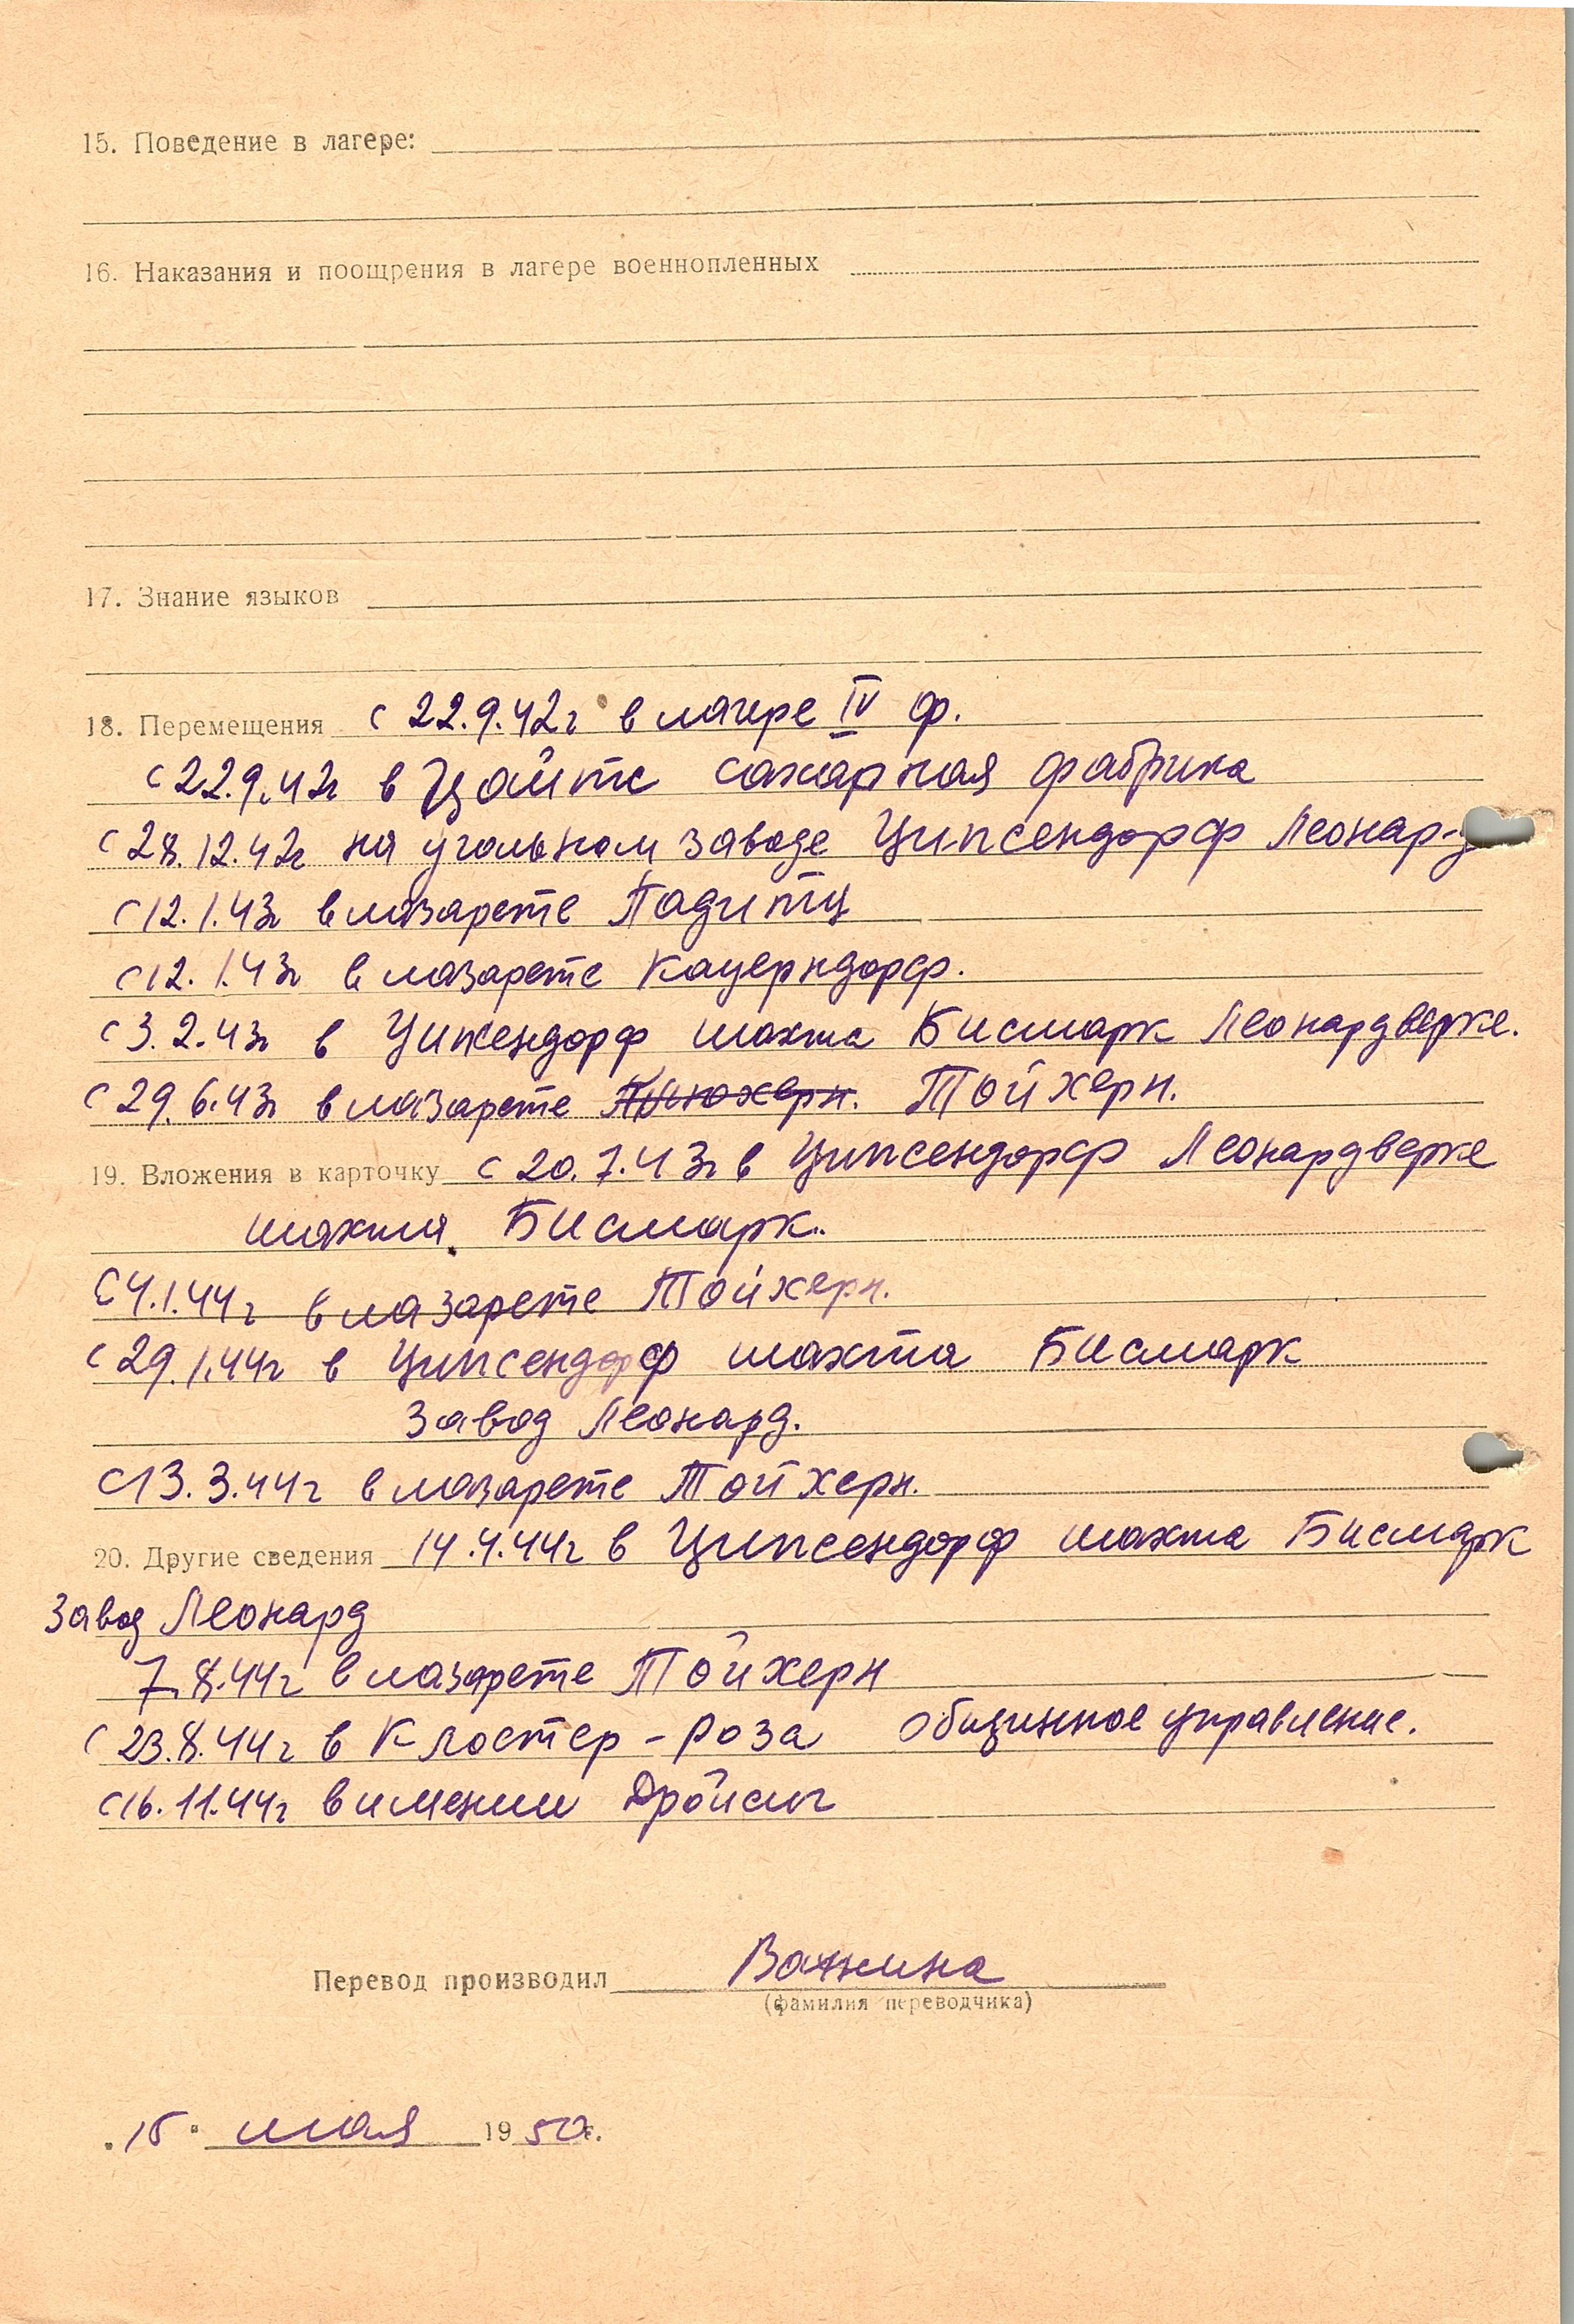 15. Поведение в лагере:
16. Наказания и поощрения в лагере военнопленных
17. Знание языков
18. Перемещения с 22.9.42г в лагере IV ф.
с 22.9.42г в Цайтс сахарная фабрика
с 28.12.42г на угольном заводе Ципсендорф Леонар-д
с 12.1.43г в лазарете Падитц
с 12.1.43г в лазарете Кауерндорф.
с 3.2.43г в Ципсендорф шахта Бисмарк Леонардверке.
с 29.6.43г в лазарете Тойхерн.
19. Вложения в карточку с 20.7.43г в Ципсендорф Леонардверке
шахта Бисмарк.
С 4.1.44г в лазарете Тойхерн.
с 29.1.44г в Ципсендорф шахта Бисмарк
завод Леонард.
С 13.3.44г в лазарете Тойхерн.
20. Другие сведения 14.4.44г в Ципсендорф шахта Бисмарк
завод Леонард
7.8.44г в лазарете Тойхерн
с 23.8.44г в Клостер-Роза общинное управление.
с 16.11.44г в имении Дройсиг
Перевод производил Важнина
(фамилия переводчика)
"15" мая 1950г.